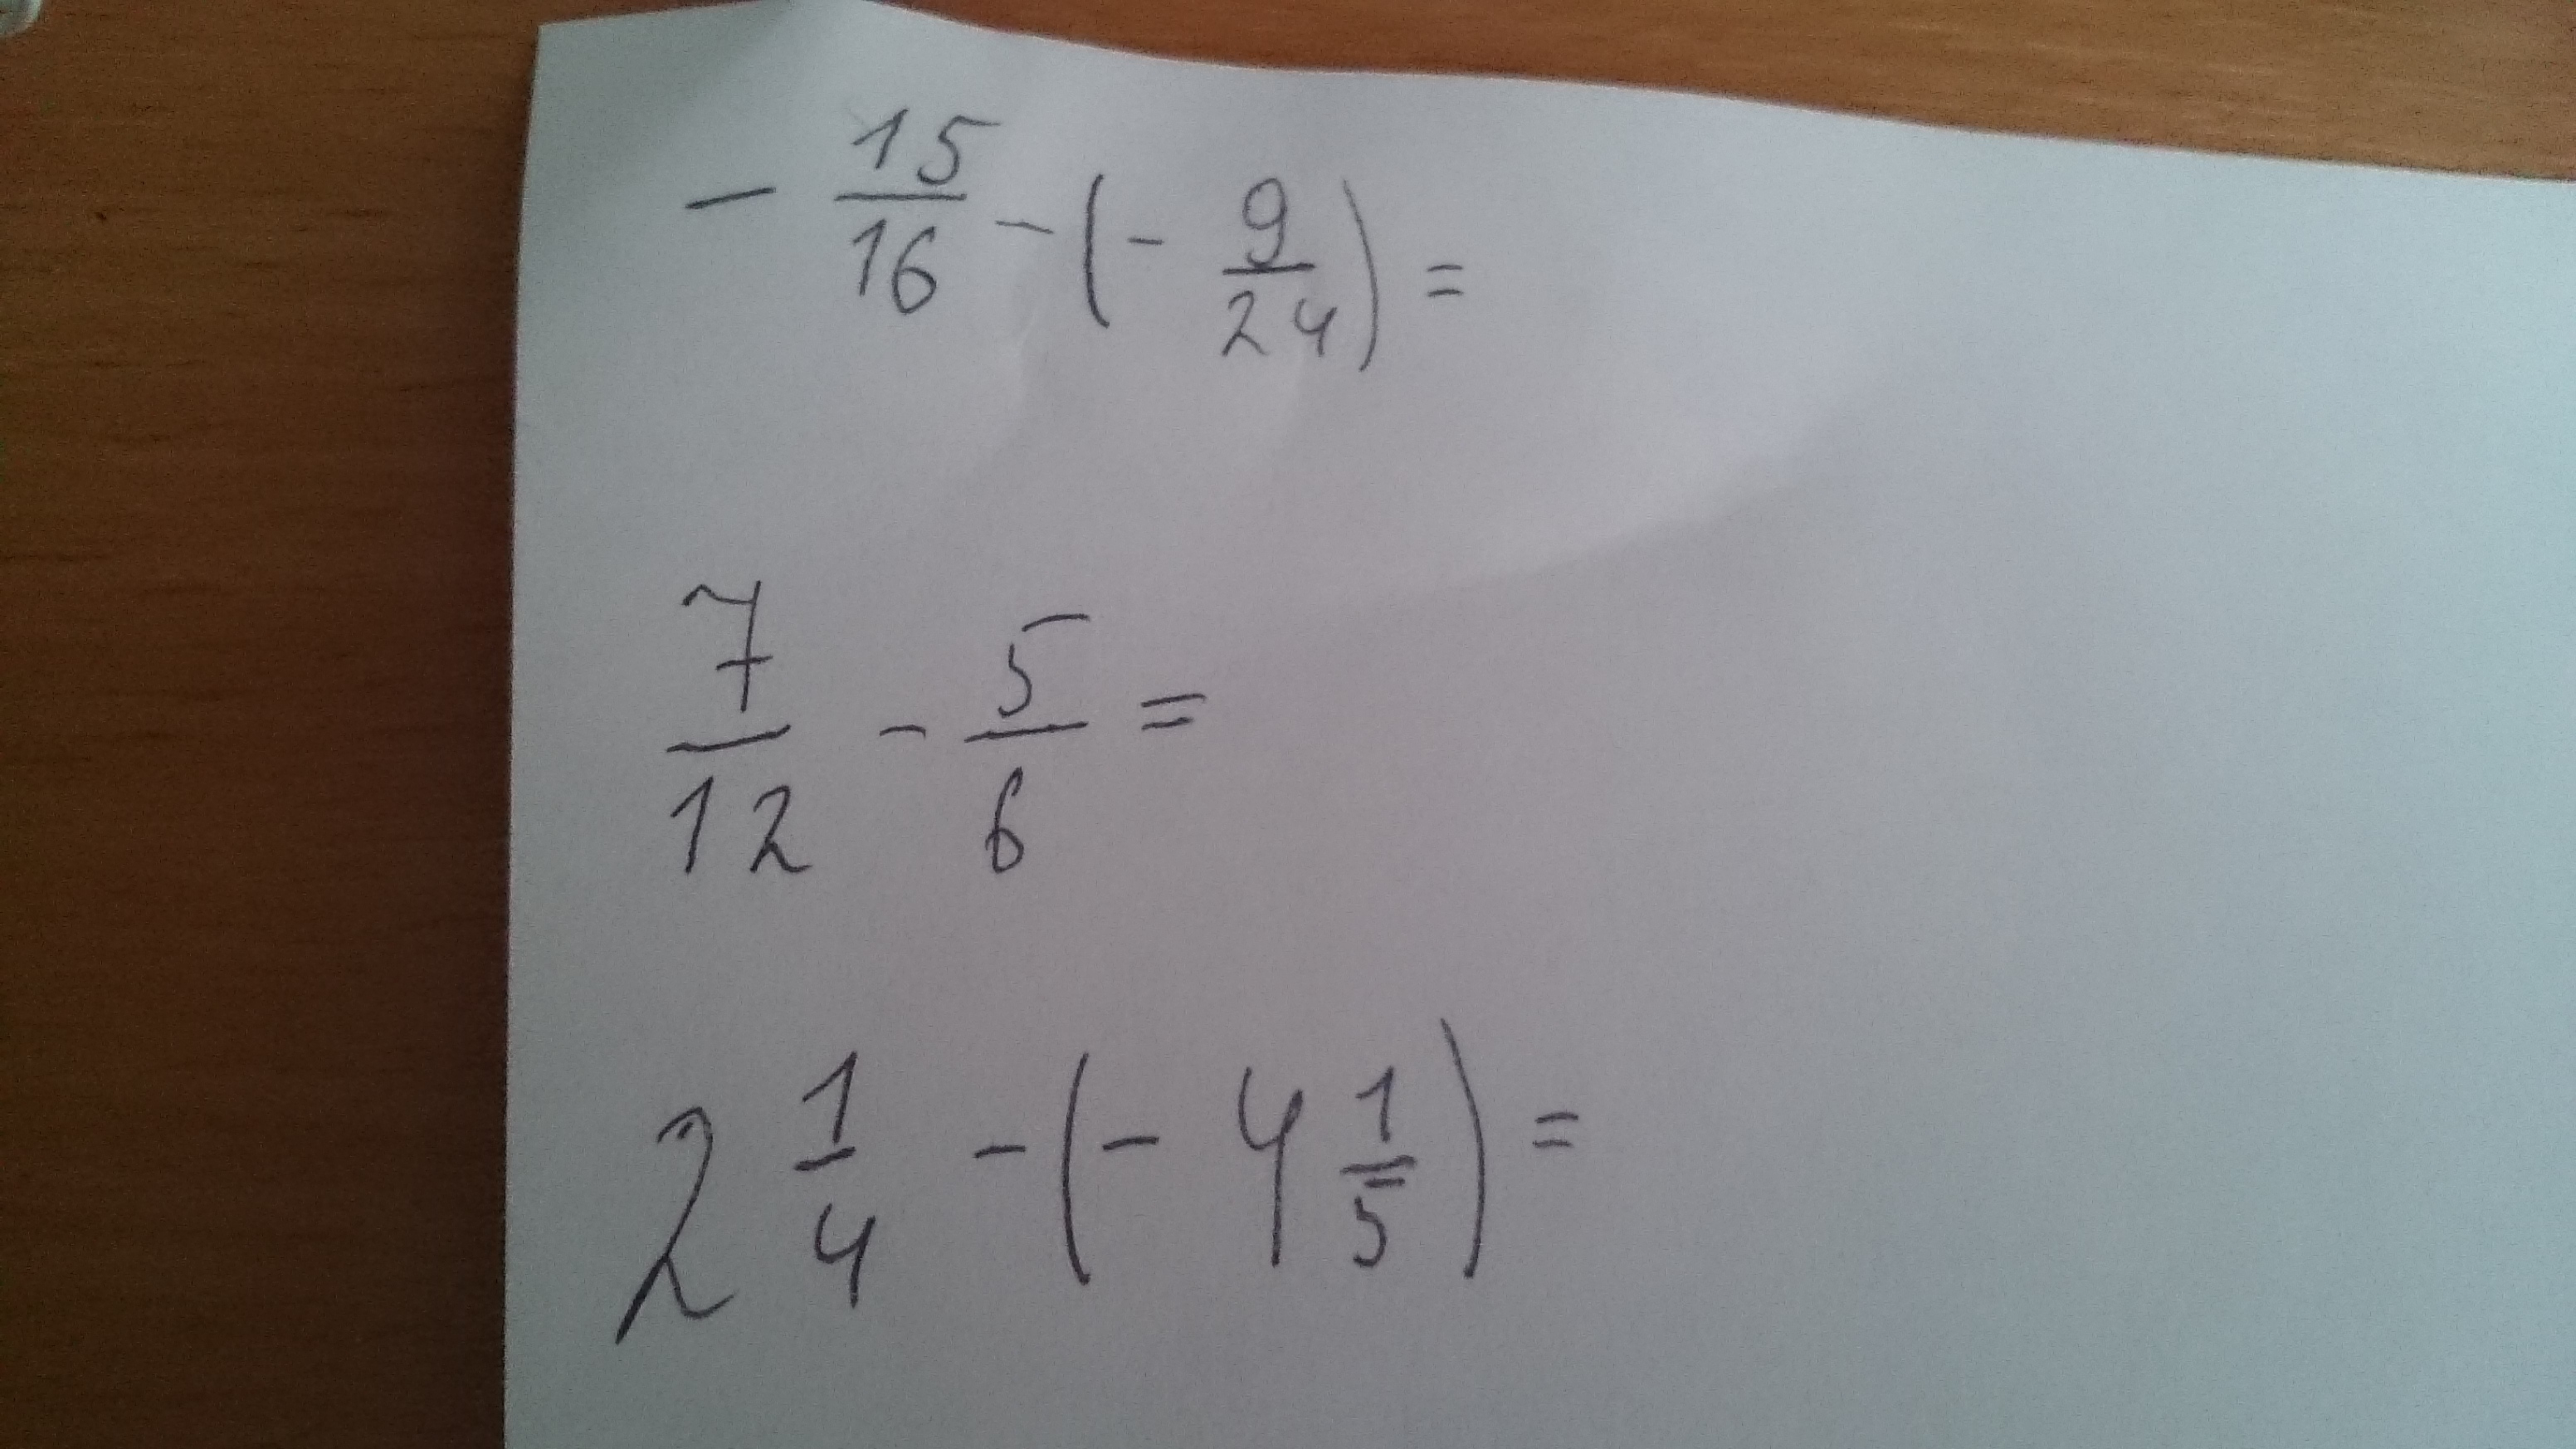 - 15/16 - (- 9/24) =
7/12 - 5/6 =
2 1/4 - (- 4 1/5) =